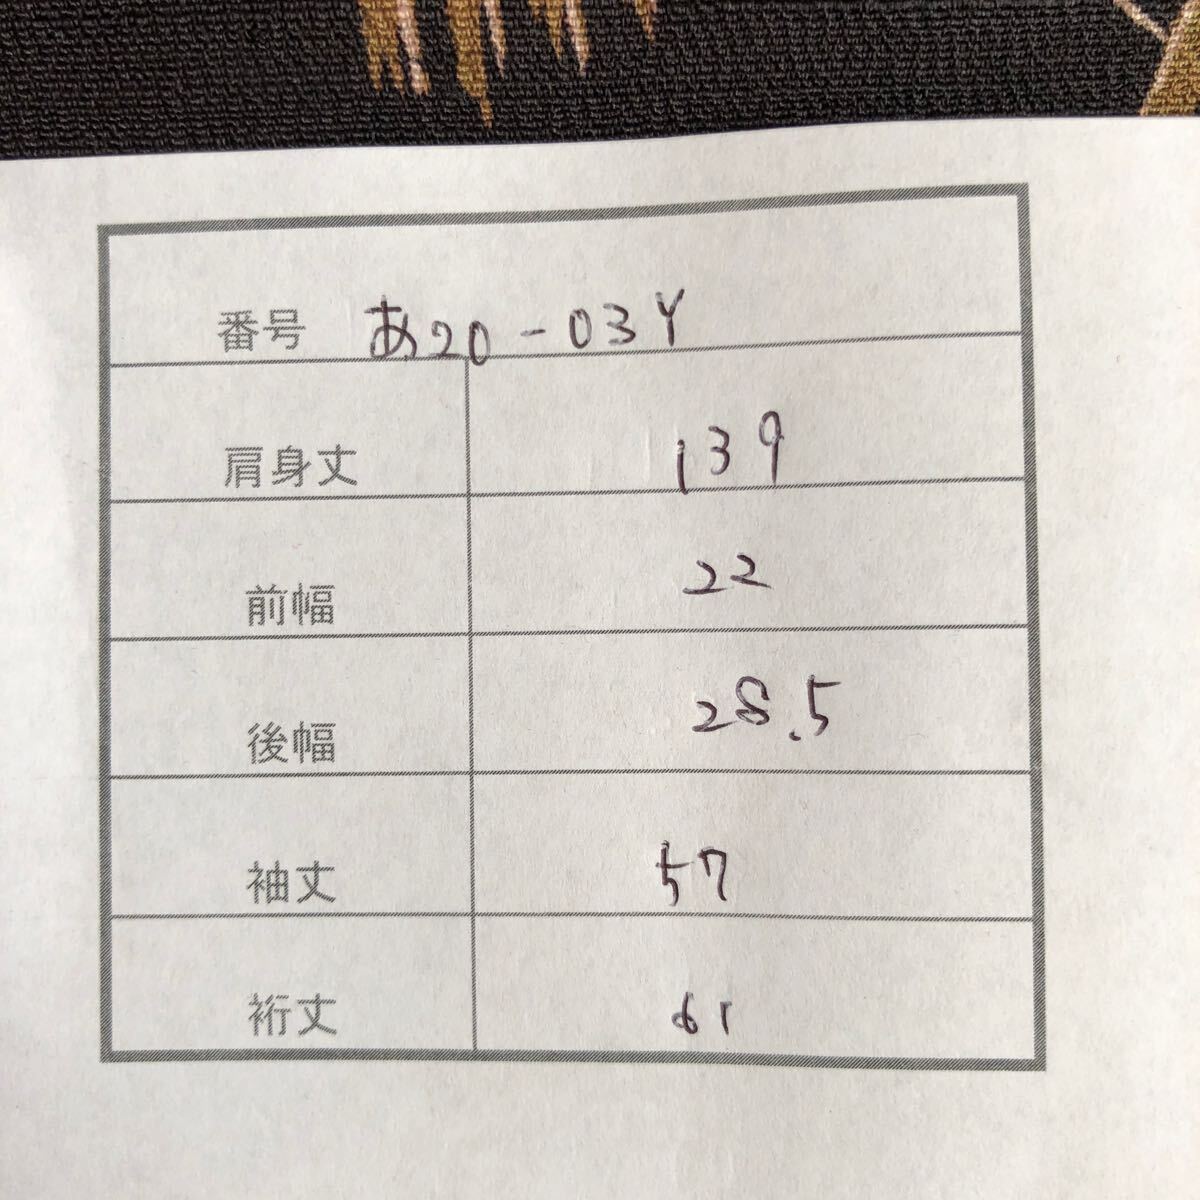 番号 あ20-03Y
肩身丈 139
前幅 22
後幅 28.5
袖丈 57
裄丈 61